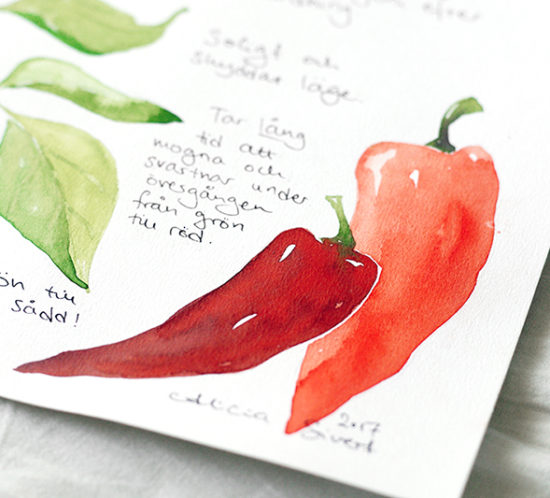 efter
Soligt och
skyddat läge.
Tar lång
tid att
mogna och
svartnar under
övergången
från grön
till röd.
ön till
sådd!
Alicia Sivert
2017